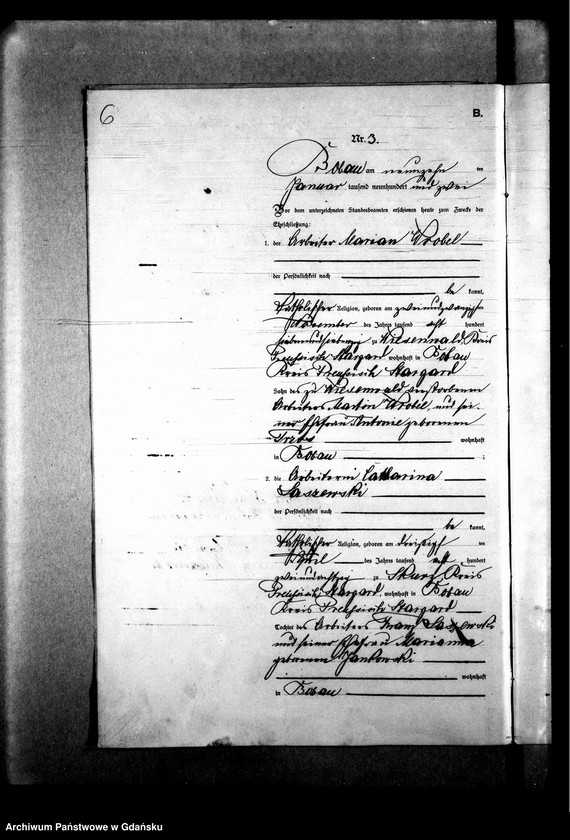 6
B.
Nr. 3.
Bobau am neunzehn ten
Januar tausend neunhundert und zwei
Vor dem unterzeichneten Standesbeamten erschienen heute zum Zwecke der
Eheschließung:
1. der Arbeiter Marian Wrobel
der Persönlichkeit nach
be kannt,
katholischer Religion, geboren am zweiundzwanzigsten
November des Jahres tausend acht hundert
siebenundsiebenzig zu Wiesenwald Kreis
Preußisch Stargard, wohnhaft in Bobau
Kreis Preußisch Stargard
Sohn des zu Wiesenwald verstorbenen
Arbeiters Martin Wrobel, und sei-
ner Ehefrau Antonie geborenen
wohnhaft
in Bobau ;
2. die Arbeiterin Catharina
Saszewski
der Persönlichkeit nach
be kannt,
katholischer Religion, geboren am dreißigst ten
April des Jahres tausend acht hundert
zweiundachtzig zu Skurz Kreis
Preußisch Stargard, wohnhaft in Bobau
Kreis Preußisch Stargard
Tochter des Arbeiters Franz Saszewski
und seiner Ehefrau Marianna
geborenen Jankowski
wohnhaft
in Bobau
Archiwum Państwowe w Gdańsku